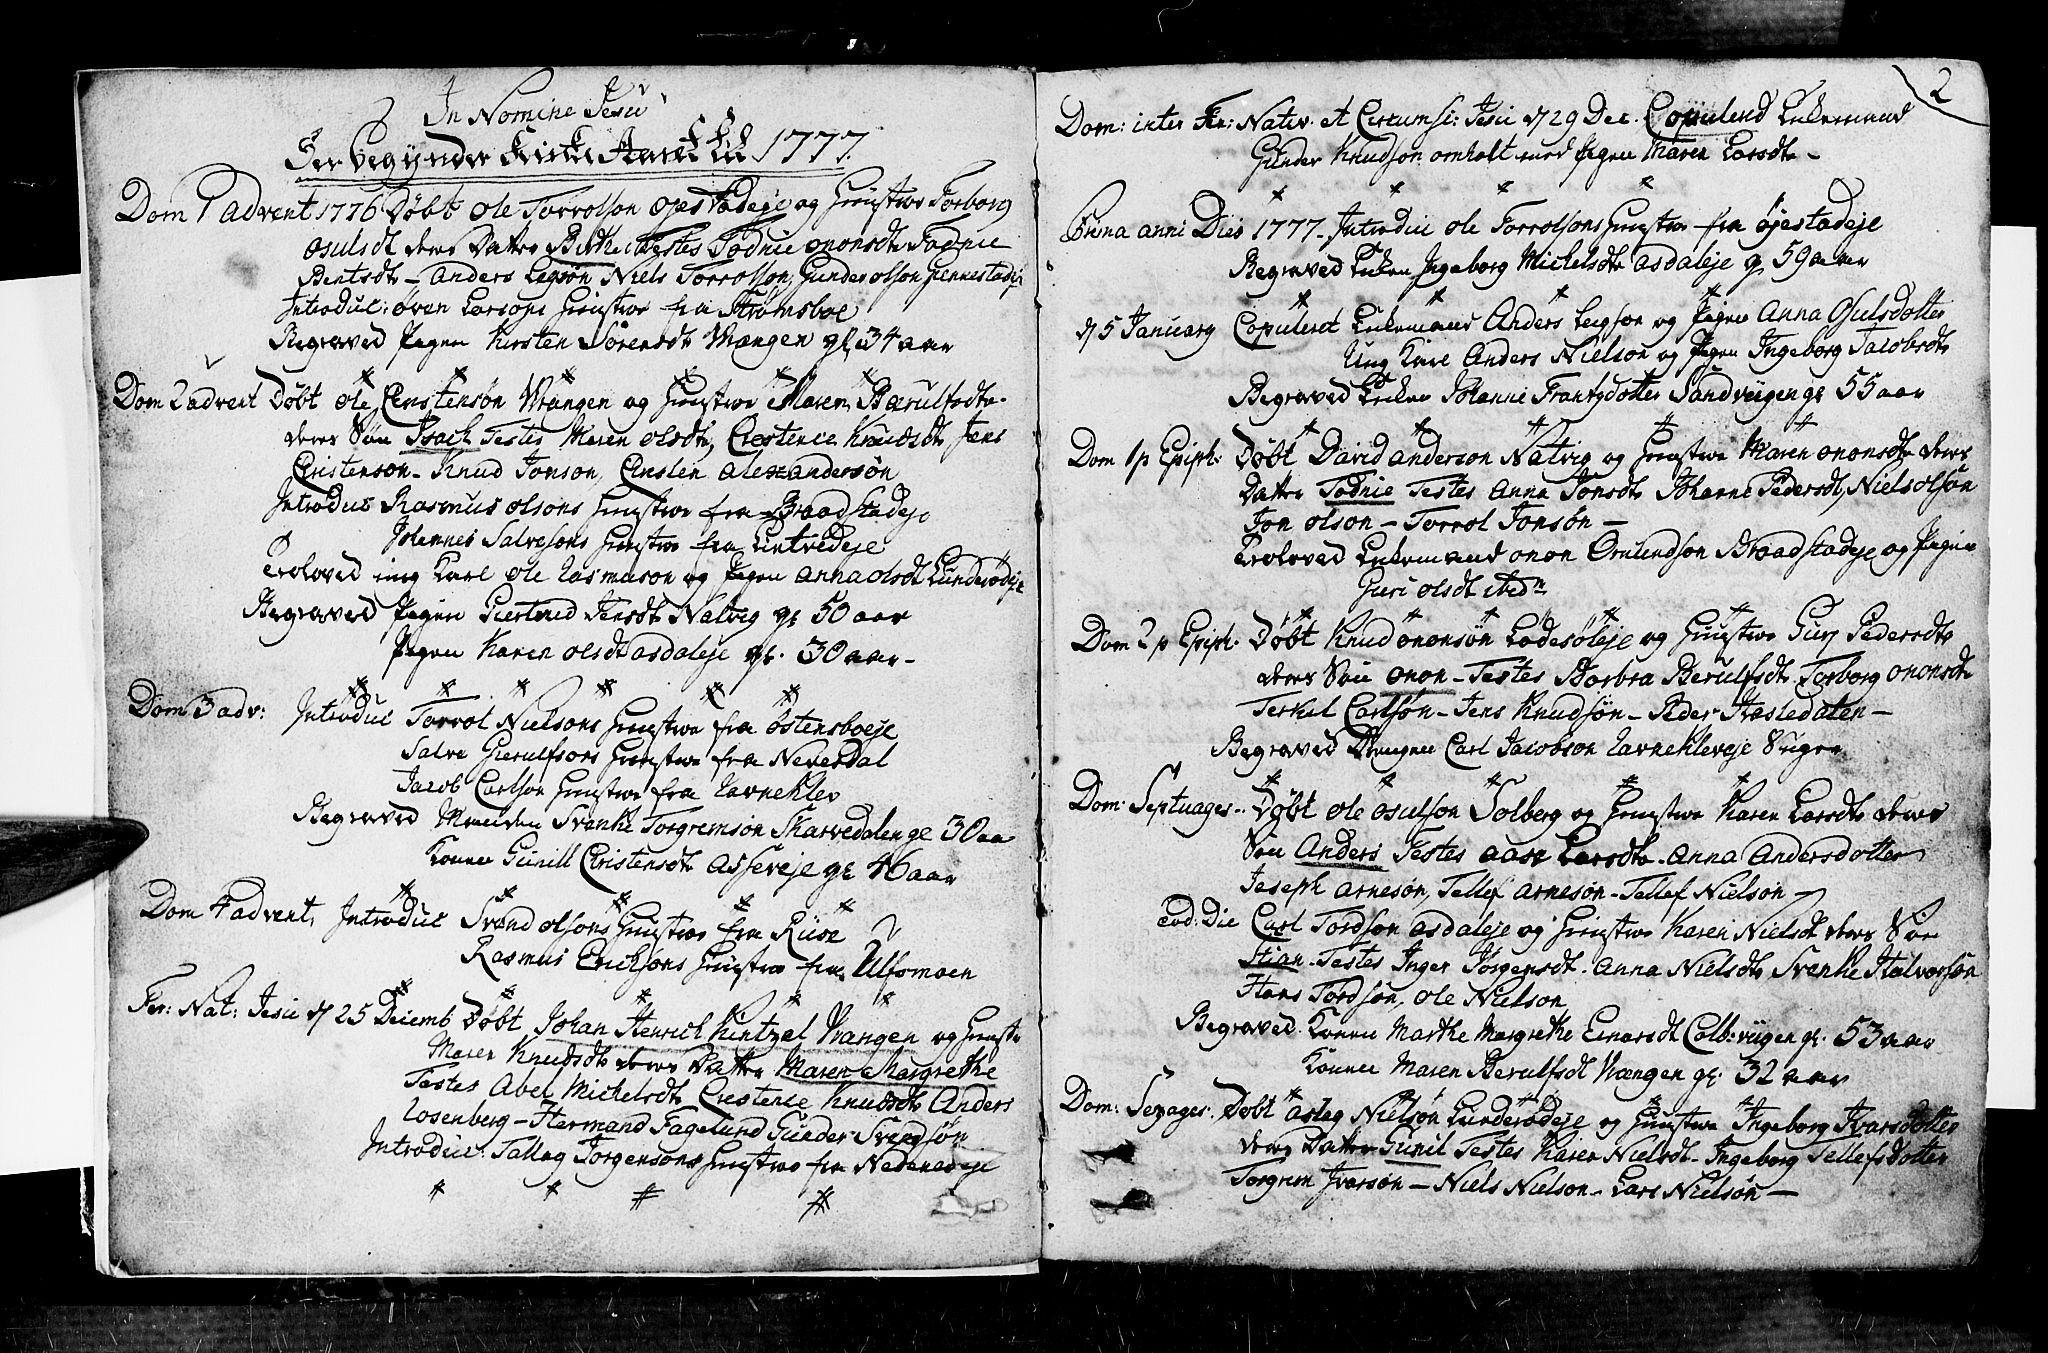 In Nomine Jesu
Her begynder Kirke Aaret 1777.
Dom 1 advent 1776 Døbt Ole Torrolson Øjestadeje og Hustroe Torborg
Osulsdt deres Datter Birthe Testes Todnie Ononsdt Todnie
Bentsdt - Anders Legsøn Niels Torrolson, Gunder Olson Gennestadeje
Introduc: Øven Larsons Hustroe fra Strømsboe
Begraved Pigen Kirsten Sørensdt Wrængen gl. 34 aar
Dom 2 advent Døbt Ole Cristensøn Wrangen og Hustroe Maren Bærulfsdt.
deres Søn Isach Testes Maren Olsdt, Crestence Knudsdt Jens
Cristenson - Knud Jonson, Cristen Alexandersøn
Introduc Rasmus Olsons Hustroe fra Braadstadeje
Johannes Salvesons Hustroe fra Lintvedeje
Troloved ung Karl Ole Rasmuson og Pigen Anna Olsdt Lunderødeje
Begraved Pigen Giertrud Jensdt Natvig gl 50 aar
Pigen Karen Olsdt Asdaleje gl. 30 aar -
Dom 3 adv: Introduc Torrol Nielsons Hustroe fra Østensboeje
Salve Gierulfsons Hustroe fra Neverdal
Jacob Carlson Hustroe fra Ravneklev
Begraved Manden Svenke Torgremsøn Skarvedalen gl 30 aa
Konen Gunill Cristensdt Asseveje gl 46 aar
Dom 4 advent, Introduc Svend Olsons Hustroe fra Riise
Rasmus Ericksons Hustroe fra Ulfsmoen
Fer: Nat: Jesu d 25 Decemb Døbt Johan Henrich Kintzel Wrangen og Hustr
Maren Knudsdt deres Datter Maren Margrethe
Testes Abel Michelsdt Crestence Knudsdt Anders
Rosenberg - Hermand Fagelund Gunder Svendsøn
Introduc: Tallag Jorgensons Hustroe fra Nedenæseje
2
Dom: inter Fer: Nativ. et Circumsi: Jesu d 29 Dec. Copulerd Enkemand
Gunder Knudson Omholt med Pigen Maren Larsdt -
Prima anni Dies 1777. Introduc Ole Torrolsons Hustroe fra Øjestadeje
Begraved Enken Ingeborg Michelsdt Asdaleje gl 59 aar
d 5 January Copuleret Enkemand Anders Legson og Pigen Anna Osulsdotter
Ung Karl Anders Nielson og Pigen Ingeborg Jacobsdt
Begraved Enken Johanne Frantzdotter Sandviigen gl 55 aar
Dom 1 p Epiph: Døbt David Anderson Natvig og Hustroe Maren Ononsdt deres
Datter Todnie Testes Anna Jonsdt Johanne Pedersdt, Niels Olsøn
Jon Olson - Torrol Jonsøn -
Troloved Enkemand Onon Erulendson Braadstadeje og Pigen
Guri Olsdt ibidm
Dom 2 p Epiph. Døbt Knud Ononsøn Lodesøleje og Hustroe Gurj Pedersdt
deres Søn Onon - Testes Barbra Berulfsdt. Torborg Ononsdt
Terkel Carlsøn - Jens Knudsøn - Peder Hasledalen -
Begraved Drengen Carl Jacobson Ravnekleveje 8 uger
Dom: Septuages. Døbt Ole Osulson Solberg og Hustroe Karen Larsdt deres
Søn Anders Testes Aase Larsdt - Anna Andersdotter
Joseph Arnesøn, Tellef Arnesøn - Tellef Nielson
eod: Die Carl Tordson Asdaleje og Hustroe Karen Nielsdt deres Søn
Stian - Testes Inger Jørgensdt. Anna Nielsdt Svenke Halvorsøn
Hans Tordsøn, Ole Nielson
Begraved. Konen Marthe Margrethe Einarsdt Colb:viigen gl. 53 aar
Konen Maren Berulfsdt Wrængen gl. 32 aar
Dom: Sexages. Døbt Asleg Nielson Lunderødeje og Hustroe Ingeborg Ivarsdotter
deres Datter Gunil Testes Karen Nielsdt - Ingeborg Tellefsdotter
Torgrim Ivarsøn - Niels Nielson - Lars Nielsøn -